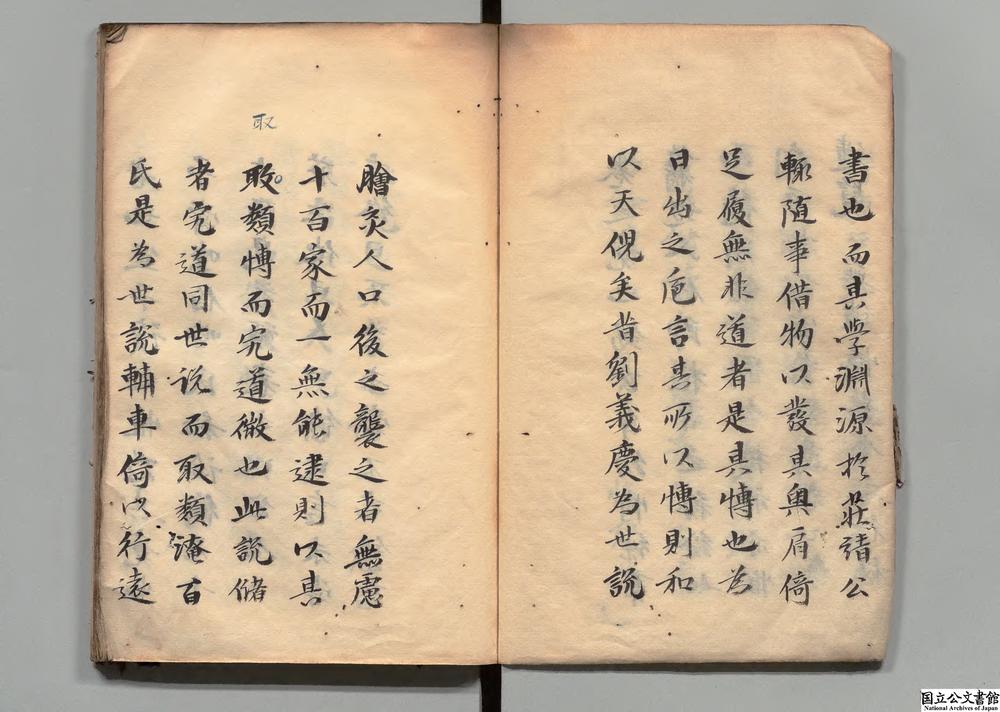 書也而其學淵源於莊諸公
輙随事借物以發其奥肩倚
足履無非道者是其愽也為
日出之巵言其所以愽則和
以天倪矣昔劉義慶為世説
膾炙人口後之襲之者無慮
十百家而一無能逮則以其
取
敢類愽而究道微也此説儲
者究道同世説而取類淹百
氏是為世説輔車倚以行遠
国立公文書館
National Archives of Japan